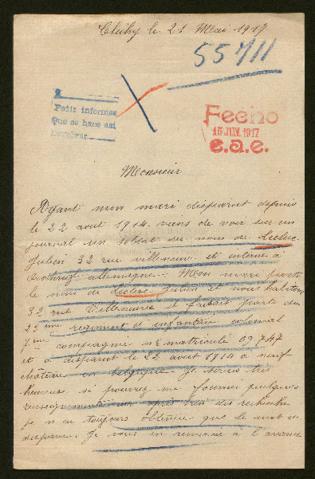 Clichy le 21 Mai 1917
55711
Petit informes
Que se hace así
Fecho
15 JUN. 1917
e.a.e.
Monsieur
Ayant mon mari disparut depuis
le 22 aout 1914 viens de voir sur un
journal un soldat du nom de Leclerc
Julien 32 rue Villeneuve et interné à
allemagne. Mon mari porte
le nom de Leclerc Julien et nous habitons
32 rue Villeneuve il faisait partie du
regiment d'infanterie colonial
7eme compagnie matricule 09747
et a disparut le 22 aout 1914 à neuf
château en belgique. Je serais très
heureuse si pourriez me fournir quelques
renseignements car après bien des recherches
je n'ai toujours obtenue que le mot de
disparut. Je vous en remercie à l'avance